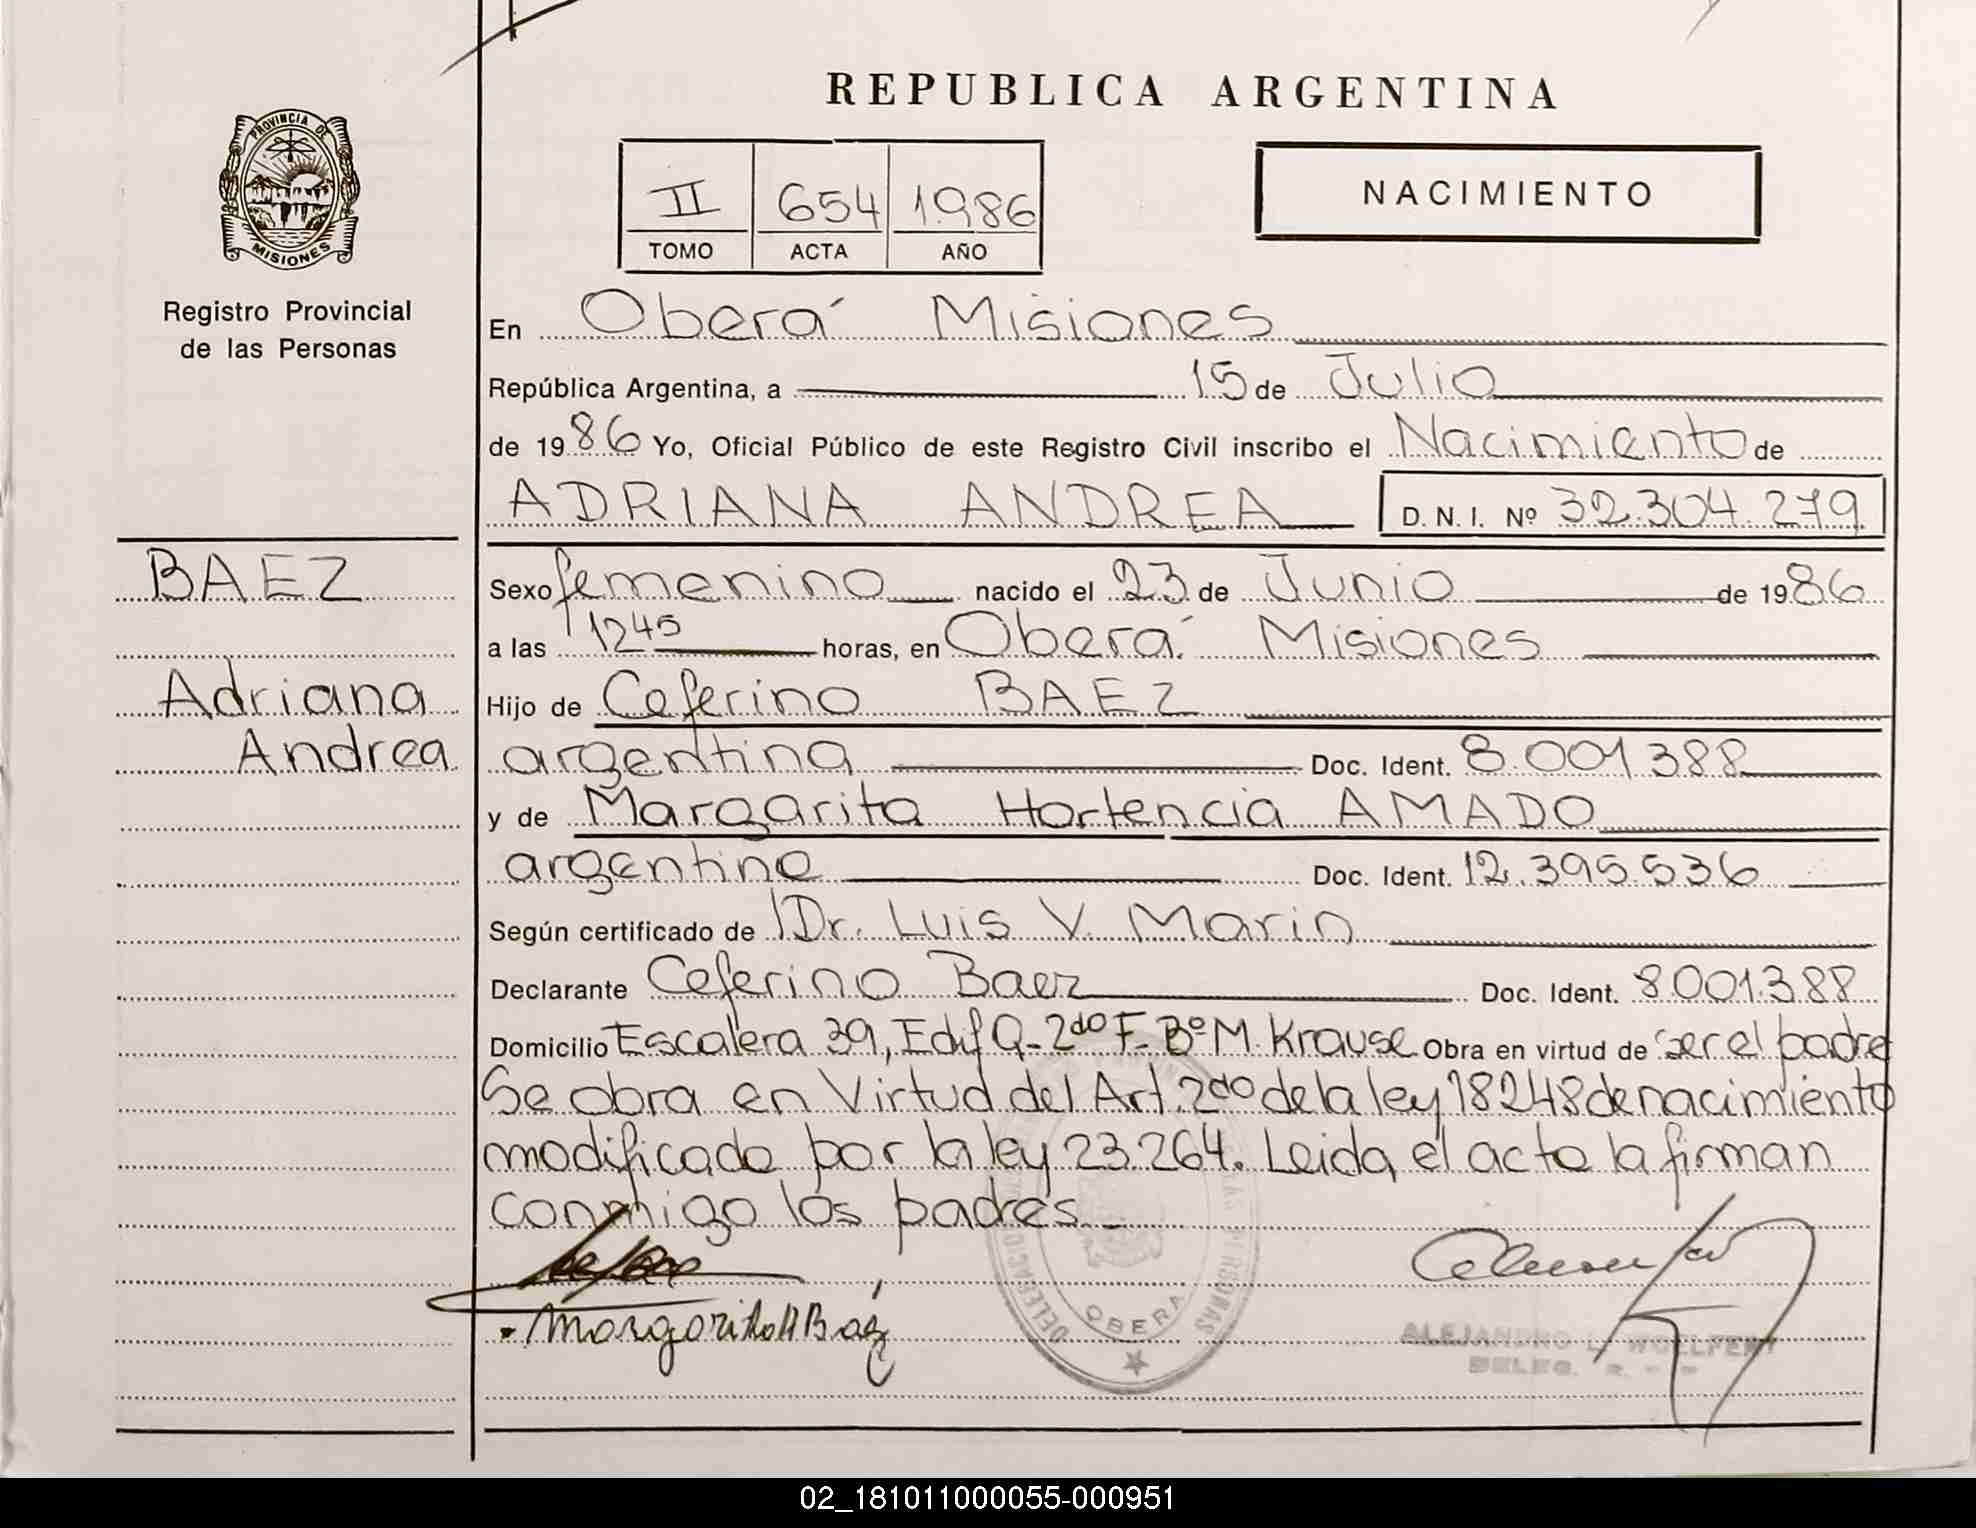 REPUBLICA ARGENTINA
PROVINCIA DE
MISIONES
Registro Provincial
de las Personas
II 654 1986
TOMO ACTA AÑO
NACIMIENTO
En Oberá Misiones
República Argentina, a 15 de Julio
de 1986 Yo, Oficial Público de este Registro Civil inscribo el Nacimiento de
ADRIANA ANDREA D. N. I. Nº 32.304.279
BAEZ
Adriana
Andrea
Sexo femenino nacido el 23 de Junio de 1986
a las 1245 horas, en Oberá Misiones
Hijo de Ceferino BAEZ
argentina Doc. Ident. 8.001388
y de Margarita Hortencia AMADO
argentina Doc. Ident. 12.395.536
Según certificado de Dr. Luis V. Marin
Declarante Ceferino Baez Doc. Ident. 8.001.388
Domicilio Escalera 39, Edif Q-2do F-Bº M. Krause Obra en virtud de ser el padre
Se obra en Virtud del Art. 2do de la ley 18248 de nacimiento
modificado por la ley 23.264. Leida el acta la firman
conmigo los padres.
Margarita H Baéz
DELEGACION
PERSONAS
OBERA
ALEJANDRO L. WOELFERT
DELEG.
02_181011000055-000951